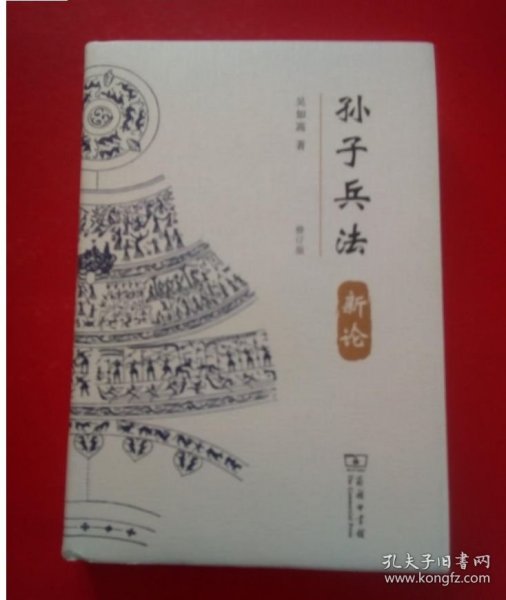 孙子兵法
新论
吴如嵩 著
修订版
商务印书馆
The Commercial Press
孔夫子旧书网
www.kongfz.com